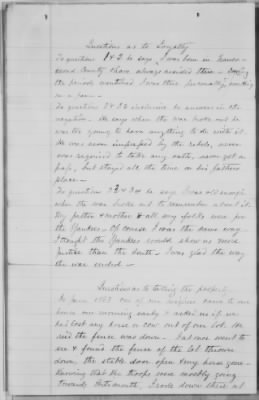 Questions as to Loyalty
To questions 1 & 2 he says, I was born in
County & have always resided there - During
the periods mentioned I was there personally, working
on a farm -
To questions 3 & 22 inclusive he answers in the
negative - He says when the war broke out he
was too young to have anything to do with it.
He was never impressed by the rebels, never
was required to take any oath, never got a
pass, but stayed all the time on his fathers
place -
To questions 23 & 24 he says I was old enough
when the war broke out to remember about it.
My father & mother & all my folks were for
the Yankees - Of course I was the same way
I thought the Yankees would show us more
justice than the South. I was glad the way
the war ended -
Questions as to taking the property
In June 1863 one of our neighbors came to our
house one morning early & asked us if we
had lost any horse or cow out of our lot. He
said the fence was down. Father went to
see & found the fence of the lot thrown
down, the stable door open & my horse gone -
Knowing that the troops were mostly going
towards Portsmouth, I rode down there at